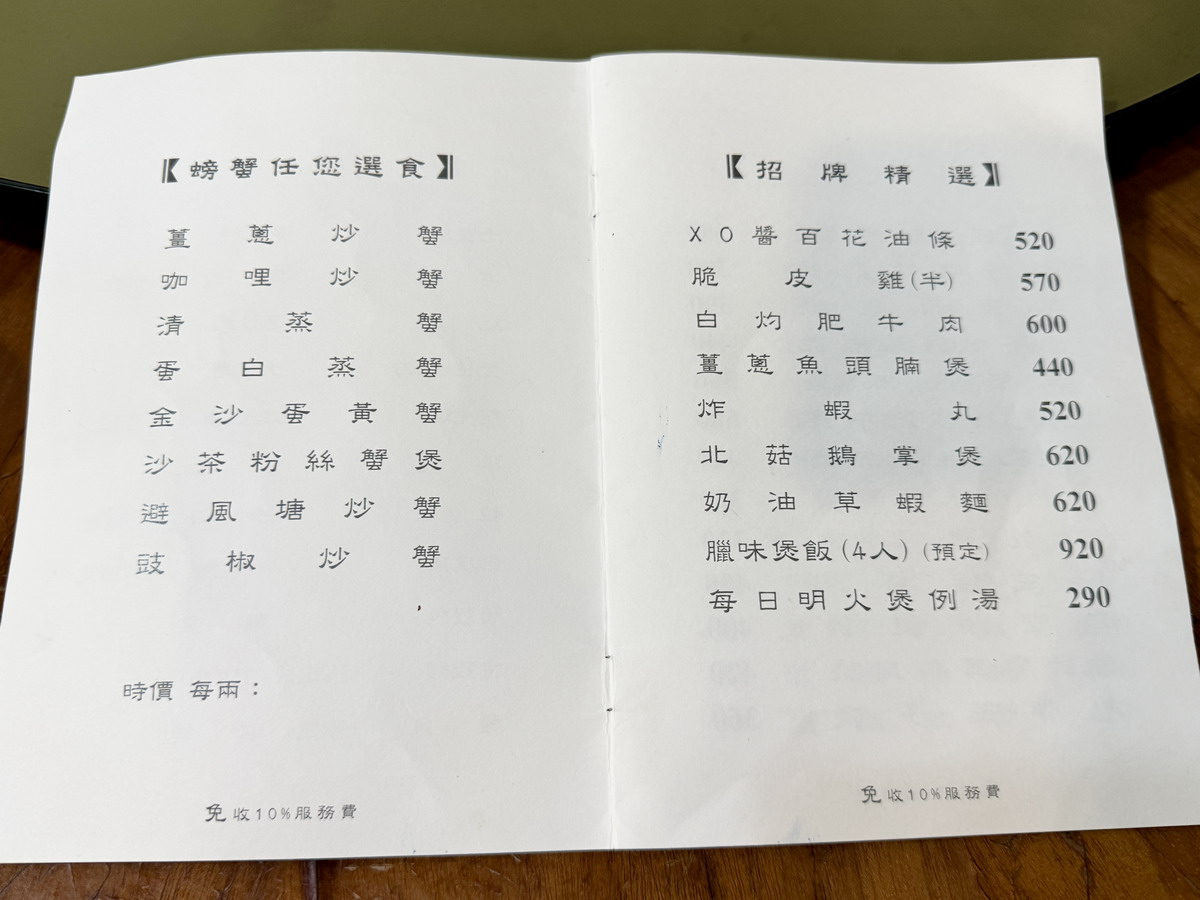 【螃蟹任您選食】
薑蔥炒蟹
咖哩炒蟹
清蒸蟹
蛋白蒸蟹
金沙蛋黃蟹
沙茶粉絲蟹煲
避風塘炒蟹
豉椒炒蟹
時價 每兩：
免收10%服務費
【招牌精選】
XO醬百花油條 520
脆皮雞(半) 570
白灼肥牛肉 600
薑蔥魚頭腩煲 440
炸蝦丸 520
北菇鵝掌煲 620
奶油草蝦麵 620
臘味煲飯(4人)(預定) 920
每日明火煲例湯 290
免收10%服務費